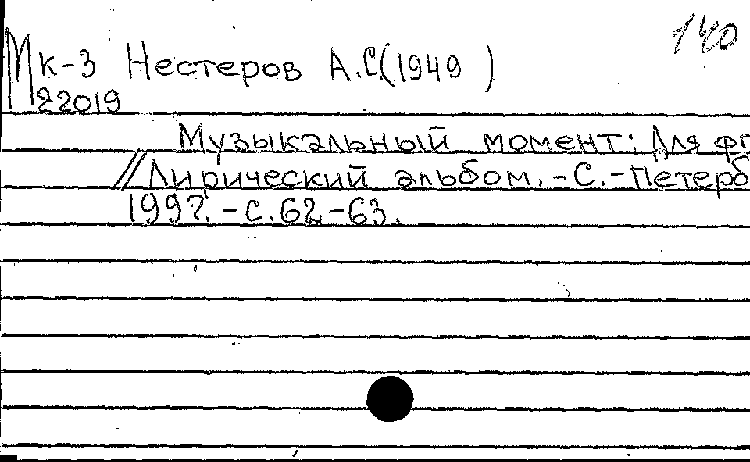 140
Мк-3 Нестеров А.С. (1949 )
22019
Музыкальный момент: Для фп
// Лирический альбом. -С.-Петерб
1997. -С.62-63.